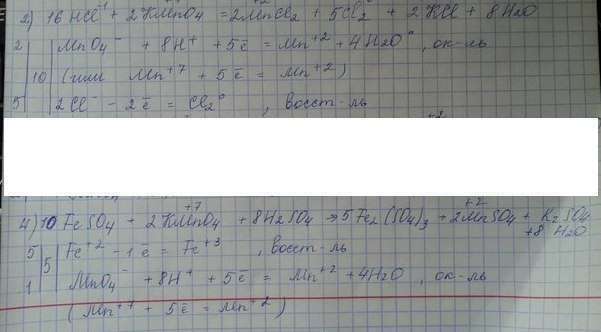 2) 16 HCl⁻¹ + 2 KMnO₄ = 2MnCl₂ + 5Cl₂° + 2 KCl + 8 H₂O
2 | MnO₄⁻ + 8H⁺ + 5ē = Mn⁺² + 4H₂O°, ок-ль
10 (или Mn⁺⁷ + 5ē = Mn⁺²)
5 | 2Cl⁻ - 2ē = Cl₂°, восст-ль
4) 10 FeSO₄ + 2KMnO₄⁺⁷ + 8H₂SO₄ → 5Fe₂(SO₄)₃ + 2Mn⁺²SO₄ + K₂SO₄
+8 H₂O
5 | 5 | Fe⁺² - 1ē = Fe⁺³, восст-ль
1 | MnO₄⁻ + 8H⁺ + 5ē = Mn⁺² + 4H₂O, ок-ль
(Mn⁺⁷ + 5ē = Mn⁺²)